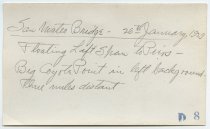 San Mateo Bridge - 26th January 1929
Floating Lift Span to Piers -
Big Coyote Point in left background.
three miles distant
D 8